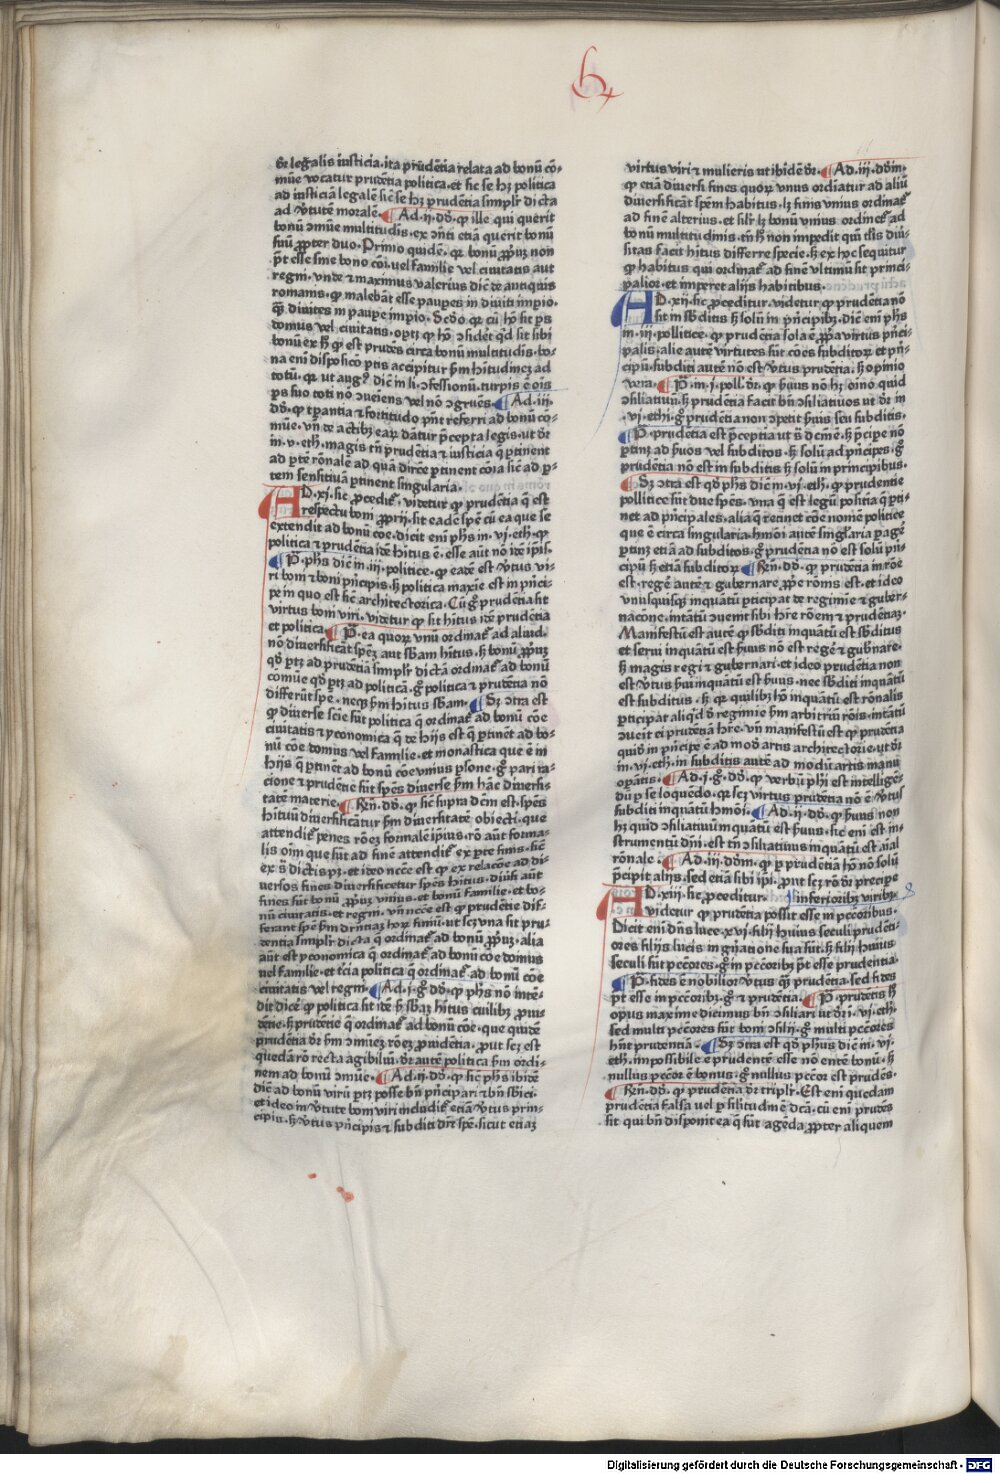 dr̄ legalis iusticia. ita prudētia relata ad bonū cō-
mūe vocatur prudētia politica. et sic se hꝫ politica
ad iusticiā legalē sic se hꝫ prudētia simplr̄ dicta
ad v̄tutē moralē. ¶ Ad .ij. dō. ꝙ ille qui querit
bonū ꝯmūe multitudīs. ex ꝯn̄ti etiā querit bonū
suū ꝓpter duo. Primo quidē. qꝛ bonū ꝓpriū non
pt̄ esse sine bono cōi. vel familie vel ciuitatis aut
regni. vnde ⁊ maximus valerius dic̄ de antiquis
romanis. ꝙ malebāt esse paupes in diuiti impio.
q̄ȝ diuites in paupe impio. Scd̄o qꝛ cū hō sit ps
domus vel ciuitatis. optꝫ ꝙ hō ꝯsidet qd̄ sit sibi
bonū ex hͦ ꝙ est prudēs circa bonū multitudīs. bo-
na enī dispositō ptis accipitur ẜm hītudineꝫ ad
totū. qꝛ ut augꝰ dic̄ in li. ꝯfessionū. turpis ē oīs
ps suo toti nō ꝯueiens vel nō ꝯgruēs. ¶ Ad .iij.
dō. ꝙ tꝑantia ⁊ fortitudo pn̄t referri ad bonū cō-
mūe. vn̄ de actibꝫ eaꝝ dātur p̄cepta legis. ut dr̄
in .v. eth. magis tn̄ prudētia ⁊ iusticia q̄ ptinent
ad ptē rōnalē ad quā dircē ptinent cōia sic ad p-
tem sensitiuā ptinent singularia.
AD .xj. sic ꝓceditᷣ. videtur ꝙ prudētia q̄ est
respectu boni ꝓprij. sit eadē spē cū ea que se
extendit ad bonū cōe. dicit enī phs in .vj. eth. ꝙ
politica ⁊ prudētia idē hitus ē. esse aūt nō idē ipīs.
¶ P. phs dic̄ in .iij. politice. ꝙ eadē est v̄tus vi-
ri boni ⁊ boni pn̄cipis. ẜ politica maxīe est in pn̄ci-
pe in quo est sic architectorica. Cū gͦ prudētia sit
virtus boni viri. videtur ꝙ sit hitus idē prudētia
et politica. ¶ P. ea quoꝝ vnū ordinatᷣ ad aliud.
nō diuersificāt spēꝫ aut sb̄am hitus. ẜ bonū ꝓpriū
qd̄ ptꝫ ad prudētiā simplr̄ dictā ordinatᷣ ad bonū
comūe qd̄ ptꝫ ad politicā. gͦ politica ⁊ prudētia nō
differūt spē. neqꝫ ẜm hitus sb̄am. ¶ Sꝫ ꝯtra est
ꝙ diuerse sciē sūt politica q̄ ordinatᷣ ad bonū cōe
ciuitatis ⁊ yconomica q̄ de hijs est q̄ ptinēt ad bo-
nū cōe domus vel familie. et monastica que ē in
hijs q̄ ptinēt ad bonū cōe vnius psone. gͦ pari ra-
cione ⁊ prudētie sūt spēs diuerse ẜm hāc diuersi-
tatē materie. ¶ Rn̄. dō. ꝙ sic supra dcm̄ est. spēs
hituū diuersificātur ẜm diuersitatē obiecti. que
attenditᷣ penes rōeꝫ formalē ipius. rō aūt forma-
lis oīm que sūt ad finē attenditᷣ ex pte finis. sic
ex s̄ dictis pꝫ. et ideo nccē est ꝙ ex relacōe ad di-
uersos fines diuersificetur spēs hitus. diūsi aūt
fines sūt bonū ꝓpriū vnius. et bonū familie. et bo-
nū ciuitatis. et regni. vn̄ nccē est ꝙ prudētie dif-
ferant spē ẜm dr̄ntiaꝫ hoꝝ finiū. ut scꝫ vna sit pru-
dentia simplr̄ dicta q̄ ordinatᷣ ad bonū ꝓpriū. alia
aūt est yconomica q̄ ordinatᷣ ad bonū cōe domus
vel familie. et tc̄ia politica q̄ ordinatᷣ ad bonū cōe
ciuitatis vel regni. ¶ Ad .j. gͦ dō. ꝙ phs nō intē-
dit dicē ꝙ politica sit idē ẜm sb̄aꝫ hitus cuilibꝫ pru-
dētie. ẜ prudētie q̄ ordinatᷣ ad bonū cōe. que quidē
prudētia dr̄ ẜm ꝯmūeꝫ rōeꝫ prudētia. prout scꝫ est
quedā rō recta agibiliū. dr̄ aūtē politica ẜm ordi-
nem ad bonū ꝯmūe. ¶ Ad .ij. dō. ꝙ sic phs ibidē
dic̄ ad bonū virū ptꝫ posse bn̄ pn̄cipari ⁊ bn̄ sb̄ici.
et ideo in v̄tute boni viri includitᷣ etiā v̄tus prin-
cipis. ẜ v̄tus pn̄cipis ⁊ subditi dn̄t spē. sicut etiaꝫ
6
virtus viri ⁊ mulieris ut ibidē dr̄. ¶ Ad .iij. dōm.
ꝙ etiā diuersi fines quoꝝ vnus ordinatur ad aliū
diuersificāt spēm habitus. lꝫ finis vnius ordinatᷣ
ad finē alterius. et silr̄ lꝫ bonū vnius ordinetᷣ ad
bonū multitudinis. tn̄ hͦ non impedit quī tlis diūi-
sitas facit hitus differre specie. ẜ ex hoc sequitur
ꝙ habitus qui ordinatᷣ ad finē vltimū sit princi-
palior. et imperet alijs habitibus.
AD .xij. sic proceditur. videtur ꝙ prudētia nō
sit in sb̄ditis ẜ solū in pn̄cipibꝫ. dic̄ enī phs
in .iij. pollitice. ꝙ prudētia sola ē ꝓpria virtus pn̄ci-
palis. alie autē virtutes sūt cōes subditoꝝ et pn̄-
cipū. subditi autē nō est v̄tus prudētia. ẜ opinio
vera. ¶ P. in .j. poll. dr̄. ꝙ ẜuus nō hꝫ oīno quid
ꝯsiliatiuū. ẜ prudētia facit bn̄ ꝯsiliatiuos ut dr̄ in
.vj. ethi. gͦ prudētia non ꝯpetit ẜuis seu subditis.
¶ P. prudētia est p̄ceptiua ut s̄ dcm̄ ē. ẜ p̄cipe nō
ptinꝫ ad ẜuos vel subditos. ẜ solū ad pn̄cipes. gͦ
prudētia nō est in subditis ẜ solū in principibus.
¶ Sꝫ ꝯtra est qd̄ phs dic̄ in .vj. eth. ꝙ prudentie
pollitice sūt due spēs. vna q̄ est legū positiua q̄ pti-
net ad pn̄cipales. alia q̄ retinet cōe nomē politice
que ē circa singularia. hmōi autē singlaria pagē
ptinꝫ etiā ad subditos. gͦ prudētia nō est solū pn̄-
cipū ẜ etiā subditoꝝ. ¶ Rn̄. dō. ꝙ prudētia in rōe
est. regē autē ⁊ gubernare ꝓprie rōnis est. et ideo
vnusquisqꝫ inquātū pticipat de regimīe ⁊ guber-
nacōne. intātū ꝯuenit sibi hr̄e rōem ⁊ prudētiaꝫ.
Manifestū est autē ꝙ sb̄diti inquātū est sb̄ditus
et serui inquātū est ẜuus nō est regē ⁊ gub̄nare.
ẜ magis regi ⁊ gubernari. et ideo prudētia non
est v̄tus ẜui inquātū est ẜuus. nec sb̄diti inquātū
est subditus. ẜ qꝛ quilibꝫ hō inquātū est rōnalis
pticipat aliqd̄ d̄ regimīe ẜm arbitriū rōis. intātū
ꝯueit ei prudētiā hr̄e. vn̄ manifestū est ꝙ prudētia
quidē in pn̄cipe ē ad modū artis architectorie. ut dr̄
in .vj. eth. in subditis autē ad modū artis manu
opātis. ¶ Ad .j. gͦ. dō. ꝙ verbū phi est intelligē-
dū p se loquēdo. qꝛ scꝫ virtus prudētia nō ē v̄tus
subditi inquātū hmōi. ¶ Ad .ij. dō. ꝙ ẜuus non
hꝫ quid ꝯsiliatiuū inquātū est ẜuus. sic enī est in-
strumētū dn̄i. est tn̄ ꝯsiliatiuus inquātū est aīal
rōnale. ¶ Ad .iij. dōm. ꝙ p prudētiā hō nō solū
p̄cipit alijs. sed etiā sibi ip̄i. prout scꝫ rō dr̄ precipe
AD .xiij. sic proceditur. inferioribꝫ viribꝫ
videtur ꝙ prudētia possit esse in pctōribus.
Dicit enī dn̄s luce. xvj. filij huius seculi prudēti-
ores filijs lucis in gn̄atione sua sūt. ẜ filij huius
seculi sūt pctōres. gͦ in pctōribꝫ pt̄ esse prudentia.
¶ P. fides ē nobilior v̄tus q̄ȝ prudētia. sed fides
pt̄ esse in pctōribꝫ. gͦ ⁊ prudētia. ¶ P. prudētis hͦ
opus maxime dicimus bn̄ ꝯsiliari ut dr̄ .vj. eth.
sed multi pctōres sūt boni ꝯsilij. gͦ multi pctōres
hn̄t prudentiā. ¶ Sꝫ ꝯtra est qd̄ phus dic̄ in .vj.
eth. impossibile ē prudentē esse nō entē bonū. ẜ
nullus pctōr ē bonus. gͦ nullus pctōr est prudēs.
¶ Rn̄. dō. ꝙ prudētia dr̄ triplr̄. Est enī quedam
prudētia falsa vel p silitudinē dcā. cū enī prudēs
sit qui bn̄ disponit ea q̄ sūt agēda ꝓpter aliquem
Digitalisierung gefördert durch die Deutsche Forschungsgemeinschaft - DFG